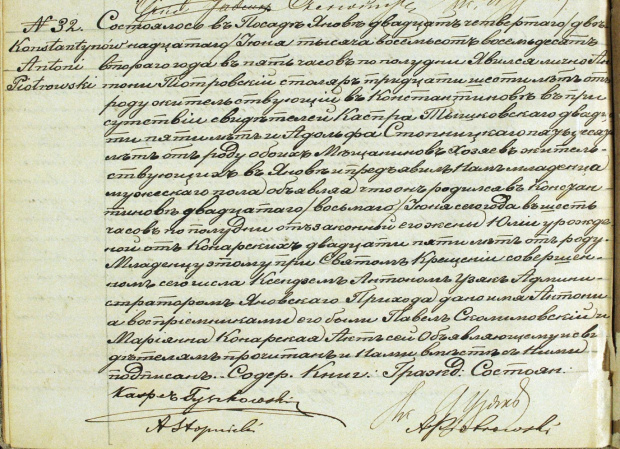 № 32.
Konstantynow
Antoni
Piotrowski
Состоялось въ Посадѣ Яновѣ двадцать четвертаго /двѣ
надцатаго Іюня тысяча восемьсотъ восемьдесятъ
втораго года въ пять часовъ по полудни Явился лично Ан
тони Піотровскій столяръ тридцати шести лѣтъ отъ
роду жительствующій въ Константиновѣ въ при
сутствіи свидѣтелей Каспра Тышковскаго двадца
ти пяти лѣтъ и Адольфа Стопницкаго
лѣтъ отъ роду обоихъ Мѣщаниновъ Хозяевъ житель
ствующихъ въ Яновѣ и предъявилъ Намъ младенца
мужескаго пола объявляя что онъ родился въ Констан
тиновѣ двадцатаго /восьмаго/ Іюня сего года въ шесть
часовъ по полудни отъ законной его жены Юліи урожде
ной отъ Конарскихъ двадцати пяти лѣтъ отъ роду.
Младенцу этому при Святомъ Крещеніи совершен
номъ сего числа Ксендзомъ Антономъ Узякъ Админи
страторомъ Яновскаго Прихода дано имя Антони
а воспріемниками его были Павелъ Скалимовскій и
Маріянна Конарская Актъ сей Объявляющему и сви
дѣтелямъ прочитанъ и Нами вмѣстѣ съ Ними
подписанъ. Содер. Книг.: Гражд: Состоян:
A Stopnicki
A Piotrowski